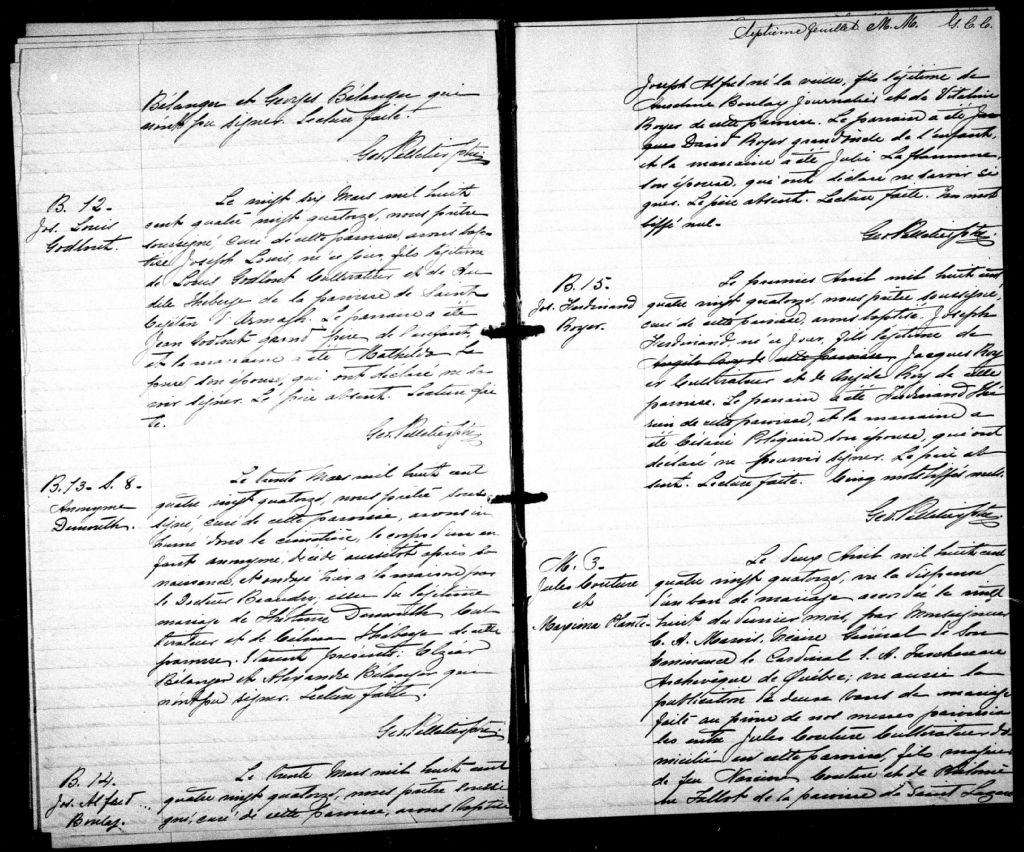 Bélanger et Georges Bélanger qui
n'ont pu signer. Lecture faite.
Geo. Pelletier Ptre
B. 12-
Jos. Louis
Godbout.
Le vingt six Mars mil huit
cent quatre vingt quatorze, nous prêtre
soussigné, curé de cette paroisse, avons bap-
tisé Joseph Louis, né ce jour, fils légitime
de Louis Godbout Cultivateur et de
Théberge de la paroisse de Saint
Cajétan d'Armagh. Le parrain a été
Jean Godbout grand père de l'enfant,
et la marraine a été Mathilde
son épouse, qui ont déclaré ne sa-
voir signer. Le père absent. Lecture fai-
te.
Geo. Pelletier Ptre
B. 13- S. 8-
Anonyme
Le trente Mars mil huit cent
quatre vingt quatorze, nous prêtre sous-
signé, curé de cette paroisse, avons in-
humé dans le cimetière, le corps d'un en-
fant anonyme, décédé aussitôt après sa
naissance, et ondoyé hier à la maison par
le Docteur Beaudry, issu du légitime
mariage de Cul-
tivateur et de Théberge de cette
paroisse. Etaient présents: Elzéar
Bélanger et Alexandre Bélanger qui
n'ont pu signer. Lecture faite.
Geo. Pelletier Ptre
B. 14.
Jos. Alfred
Boulay.
Le trente Mars mil huit cent
quatre vingt quatorze, nous prêtre soussi-
gné, curé de cette paroisse, avons baptisé
Septième feuillet M. M. G. C. C.
Joseph Alfred né la veille, fils légitime de
Anselme Boulay Journalier et de Vitaline
Royer de cette paroisse. Le parrain a été Jac-
ques David Royer grand oncle de l'enfant,
et la marraine a été Julie Laflamme,
son épouse, qui ont déclaré ne savoir si-
gner. Le père absent. Lecture faite. Un mot
biffé nul.
Geo. Pelletier Ptre
B. 15-
Jos. Ferdinand
Royer.
Le premier Avril mil huit cent
quatre vingt quatorze, nous prêtre soussigné,
curé de cette paroisse, avons baptisé Joseph
Ferdinand, né ce jour, fils légitime de
Angèle Roy de cette paroisse, Jacques Roy-
er Cultivateur et de Angèle Roy de cette
paroisse. Le parrain a été Ferdinand
de cette paroisse, et la marraine a
été Césarie Poliquin son épouse, qui ont
déclaré ne pouvoir signer. Le père ab-
sent. Lecture faite. Cinq mots biffés nuls.
Geo. Pelletier Ptre
M. 3-
Jules Couture
et
Maxima Plante
Le deux Avril mil huit cent
quatre vingt quatorze, vu la dispense
d'un ban de mariage accordée le vingt
huit du dernier mois, par Monseigneur
C. A. Marois, Vicaire Général de Son
Eminence le Cardinal E. A. Taschereau
Archevêque de Québec; vu aussi la
publication de deux bans de mariage
faite au prône de nos messes paroissia-
les entre Jules Couture Cultivateur do-
micilié en cette paroisse, fils majeur
de feu Narcisse Couture et de Philomè-
ne Fallot de la paroisse de Saint Lazare